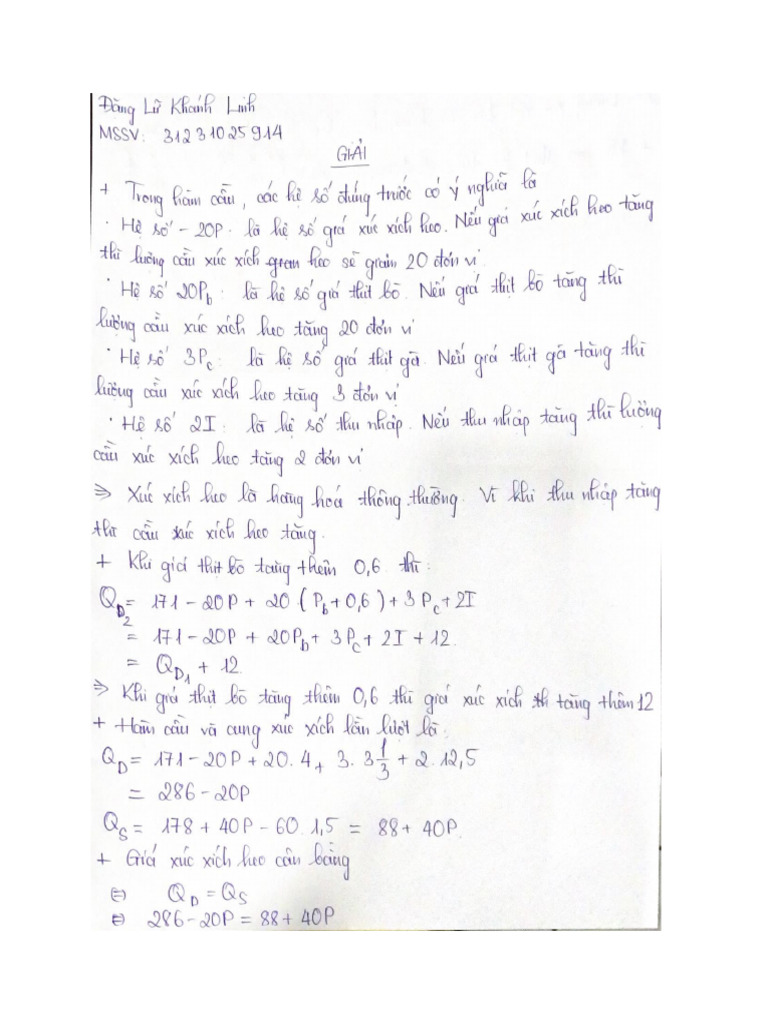 Đặng Lữ Khánh Linh
MSSV: 31231025914
GIẢI
+ Trong hàm cầu, các hệ số đứng trước có ý nghĩa là
· Hệ số -20P. là hệ số giá xúc xích heo. Nếu giá xúc xích heo tăng
thì lượng cầu xúc xích heo sẽ giảm 20 đơn vị.
· Hệ số 20P_b: là hệ số giá thịt bò. Nếu giá thịt bò tăng thì
lượng cầu xúc xích heo tăng 20 đơn vị
· Hệ số 3P_c: là hệ số giá thịt gà. Nếu giá thịt gà tăng thì
lượng cầu xúc xích heo tăng 3 đơn vị
· Hệ số 2I: là hệ số thu nhập. Nếu thu nhập tăng thì lượng
cầu xúc xích heo tăng 2 đơn vị
=> Xúc xích heo là hàng hoá thông thường. Vì khi thu nhập tăng
thì cầu xúc xích heo tăng.
+ Khi giá thịt bò tăng thêm 0,6 thì:
Q_D2 = 171 - 20P + 20.(P_b + 0,6) + 3P_c + 2I
= 171 - 20P + 20P_b + 3P_c + 2I + 12.
= Q_D1 + 12.
=> Khi giá thịt bò tăng thêm 0,6 thì giá xúc xích tăng thêm 12
+ Hàm cầu và cung xúc xích lần lượt là:
Q_D = 171 - 20P + 20.4 + 3.3 1/3 + 2.12,5
= 286 - 20P
Q_S = 178 + 40P - 60.1,5 = 88 + 40P.
+ Giá xúc xích heo cân bằng
⇔ Q_D = Q_S
⇔ 286 - 20P = 88 + 40P